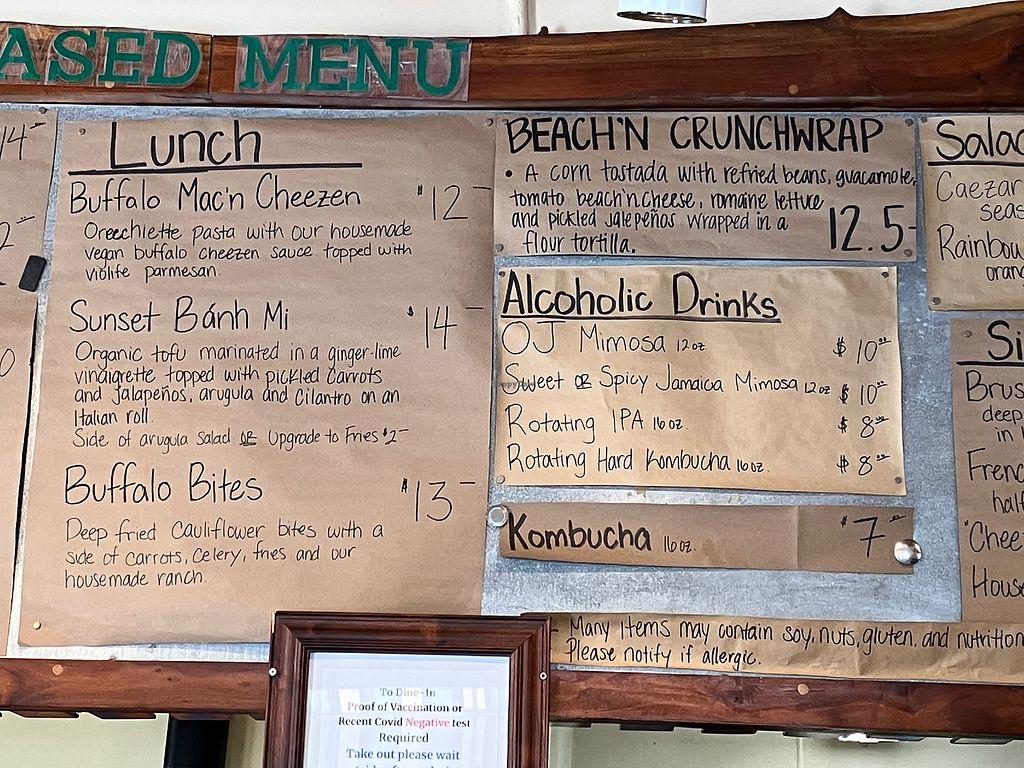 ASED MENU
14
Lunch
Buffalo Mac'n Cheezen $12-
Orecchiette pasta with our housemade
vegan buffalo cheezen sauce topped with
violife parmesan.
Sunset Bánh Mi $14-
Organic tofu marinated in a ginger-lime
vinaigrette topped with pickled carrots
and jalapeños, arugula and cilantro on an
Italian roll.
Side of arugula salad OR Upgrade to Fries $2-
Buffalo Bites $13-
Deep fried Cauliflower bites with a
side of carrots, celery, fries and our
housemade ranch.
BEACH'N CRUNCHWRAP
• A corn tostada with refried beans, guacamole,
tomato beach'n cheese, romaine lettuce
and pickled jalepeños wrapped in a
flour tortilla. 12.5-
Alcoholic Drinks
OJ Mimosa 12oz $10.00
Sweet OR Spicy Jamaica Mimosa 12oz $10.00
Rotating IPA 16oz. $8.00
Rotating Hard Kombucha 16oz. $8.00
Kombucha 16oz. $7
Many items may contain soy, nuts, gluten, and nutrition
Please notify if allergic.
Salad
Caezar
seas
Rainbow
orang
Si
Brus
deep
in
Frenc
half
"Chee
House
To Dine-In
Proof of Vaccination or
Recent Covid Negative test
Required
Take out please wait